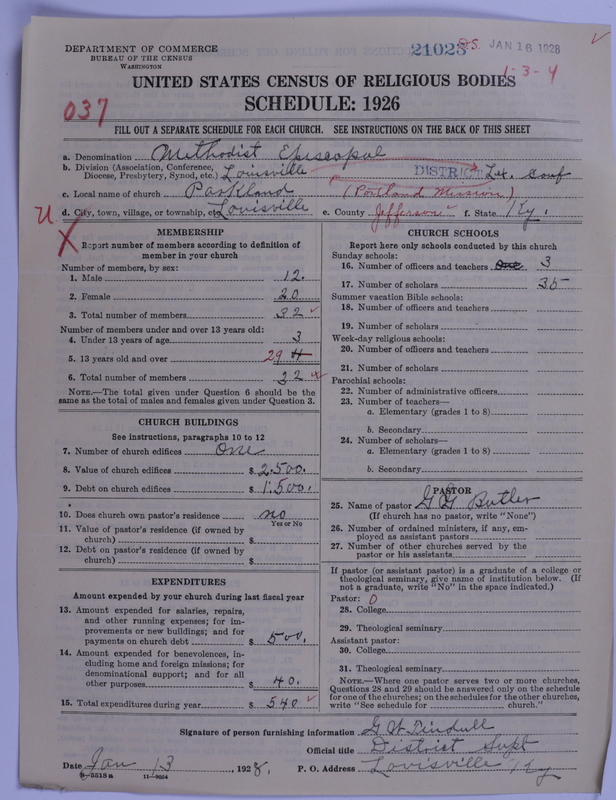 DEPARTMENT OF COMMERCE
BUREAU OF THE CENSUS
WASHINGTON
21028 D.S. JAN 16 1928
1-3-4
UNITED STATES CENSUS OF RELIGIOUS BODIES
SCHEDULE: 1926
037
FILL OUT A SEPARATE SCHEDULE FOR EACH CHURCH. SEE INSTRUCTIONS ON THE BACK OF THIS SHEET
a. Denomination Methodist Episcopal
b. Division (Association, Conference, Diocese, Presbytery, Synod, etc.) Louisville DISTRICT Lex. Conf
c. Local name of church Parkland (Portland Mission)
d. City, town, village, or township, etc. Louisville e. County Jefferson f. State Ky.
MEMBERSHIP
Report number of members according to definition of
member in your church
Number of members, by sex:
1. Male 12.
2. Female 20
3. Total number of members 32
Number of members under and over 13 years old:
4. Under 13 years of age 3
5. 13 years old and over 29 4
6. Total number of members 32
NOTE.—The total given under Question 6 should be the
same as the total of males and females given under Question 3.
CHURCH BUILDINGS
See instructions, paragraphs 10 to 12
7. Number of church edifices One
8. Value of church edifices $ 2.500.
9. Debt on church edifices $ 1.500.
10. Does church own pastor's residence? no
Yes or No
11. Value of pastor's residence (if owned by
church) $
12. Debt on pastor's residence (if owned by
church) $
EXPENDITURES
Amount expended by your church during last fiscal year
13. Amount expended for salaries, repairs,
and other running expenses; for im-
provements or new buildings; and for
payments on church debt $ 500.
14. Amount expended for benevolences, in-
cluding home and foreign missions; for
denominational support; and for all
other purposes $ 40.
15. Total expenditures during year $ 540
CHURCH SCHOOLS
Report here only schools conducted by this church
Sunday schools:
16. Number of officers and teachers One 3
17. Number of scholars 35
Summer vacation Bible schools:
18. Number of officers and teachers
19. Number of scholars
Week-day religious schools:
20. Number of officers and teachers
21. Number of scholars
Parochial schools:
22. Number of administrative officers
23. Number of teachers—
a. Elementary (grades 1 to 8)
b. Secondary
24. Number of scholars—
a. Elementary (grades 1 to 8)
b. Secondary
PASTOR
25. Name of pastor G G Butler
(If church has no pastor, write "None")
26. Number of ordained ministers, if any, em-
ployed as assistant pastors
27. Number of other churches served by the
pastor or his assistants
If pastor (or assistant pastor) is a graduate of a college or
theological seminary, give name of institution below. (If
not a graduate, write "No" in the space indicated.)
Pastor: 0
28. College
29. Theological seminary
Assistant pastor:
30. College
31. Theological seminary
NOTE.—Where one pastor serves two or more churches,
Questions 28 and 29 should be answered only on the schedule
for one of the churches; on the schedules for the other churches,
write "See schedule for church."
Signature of person furnishing information G W Tindull
Official title District Supt
Date Jan 13, 1928. P. O. Address Louisville Ky
8—5518a 11—9054